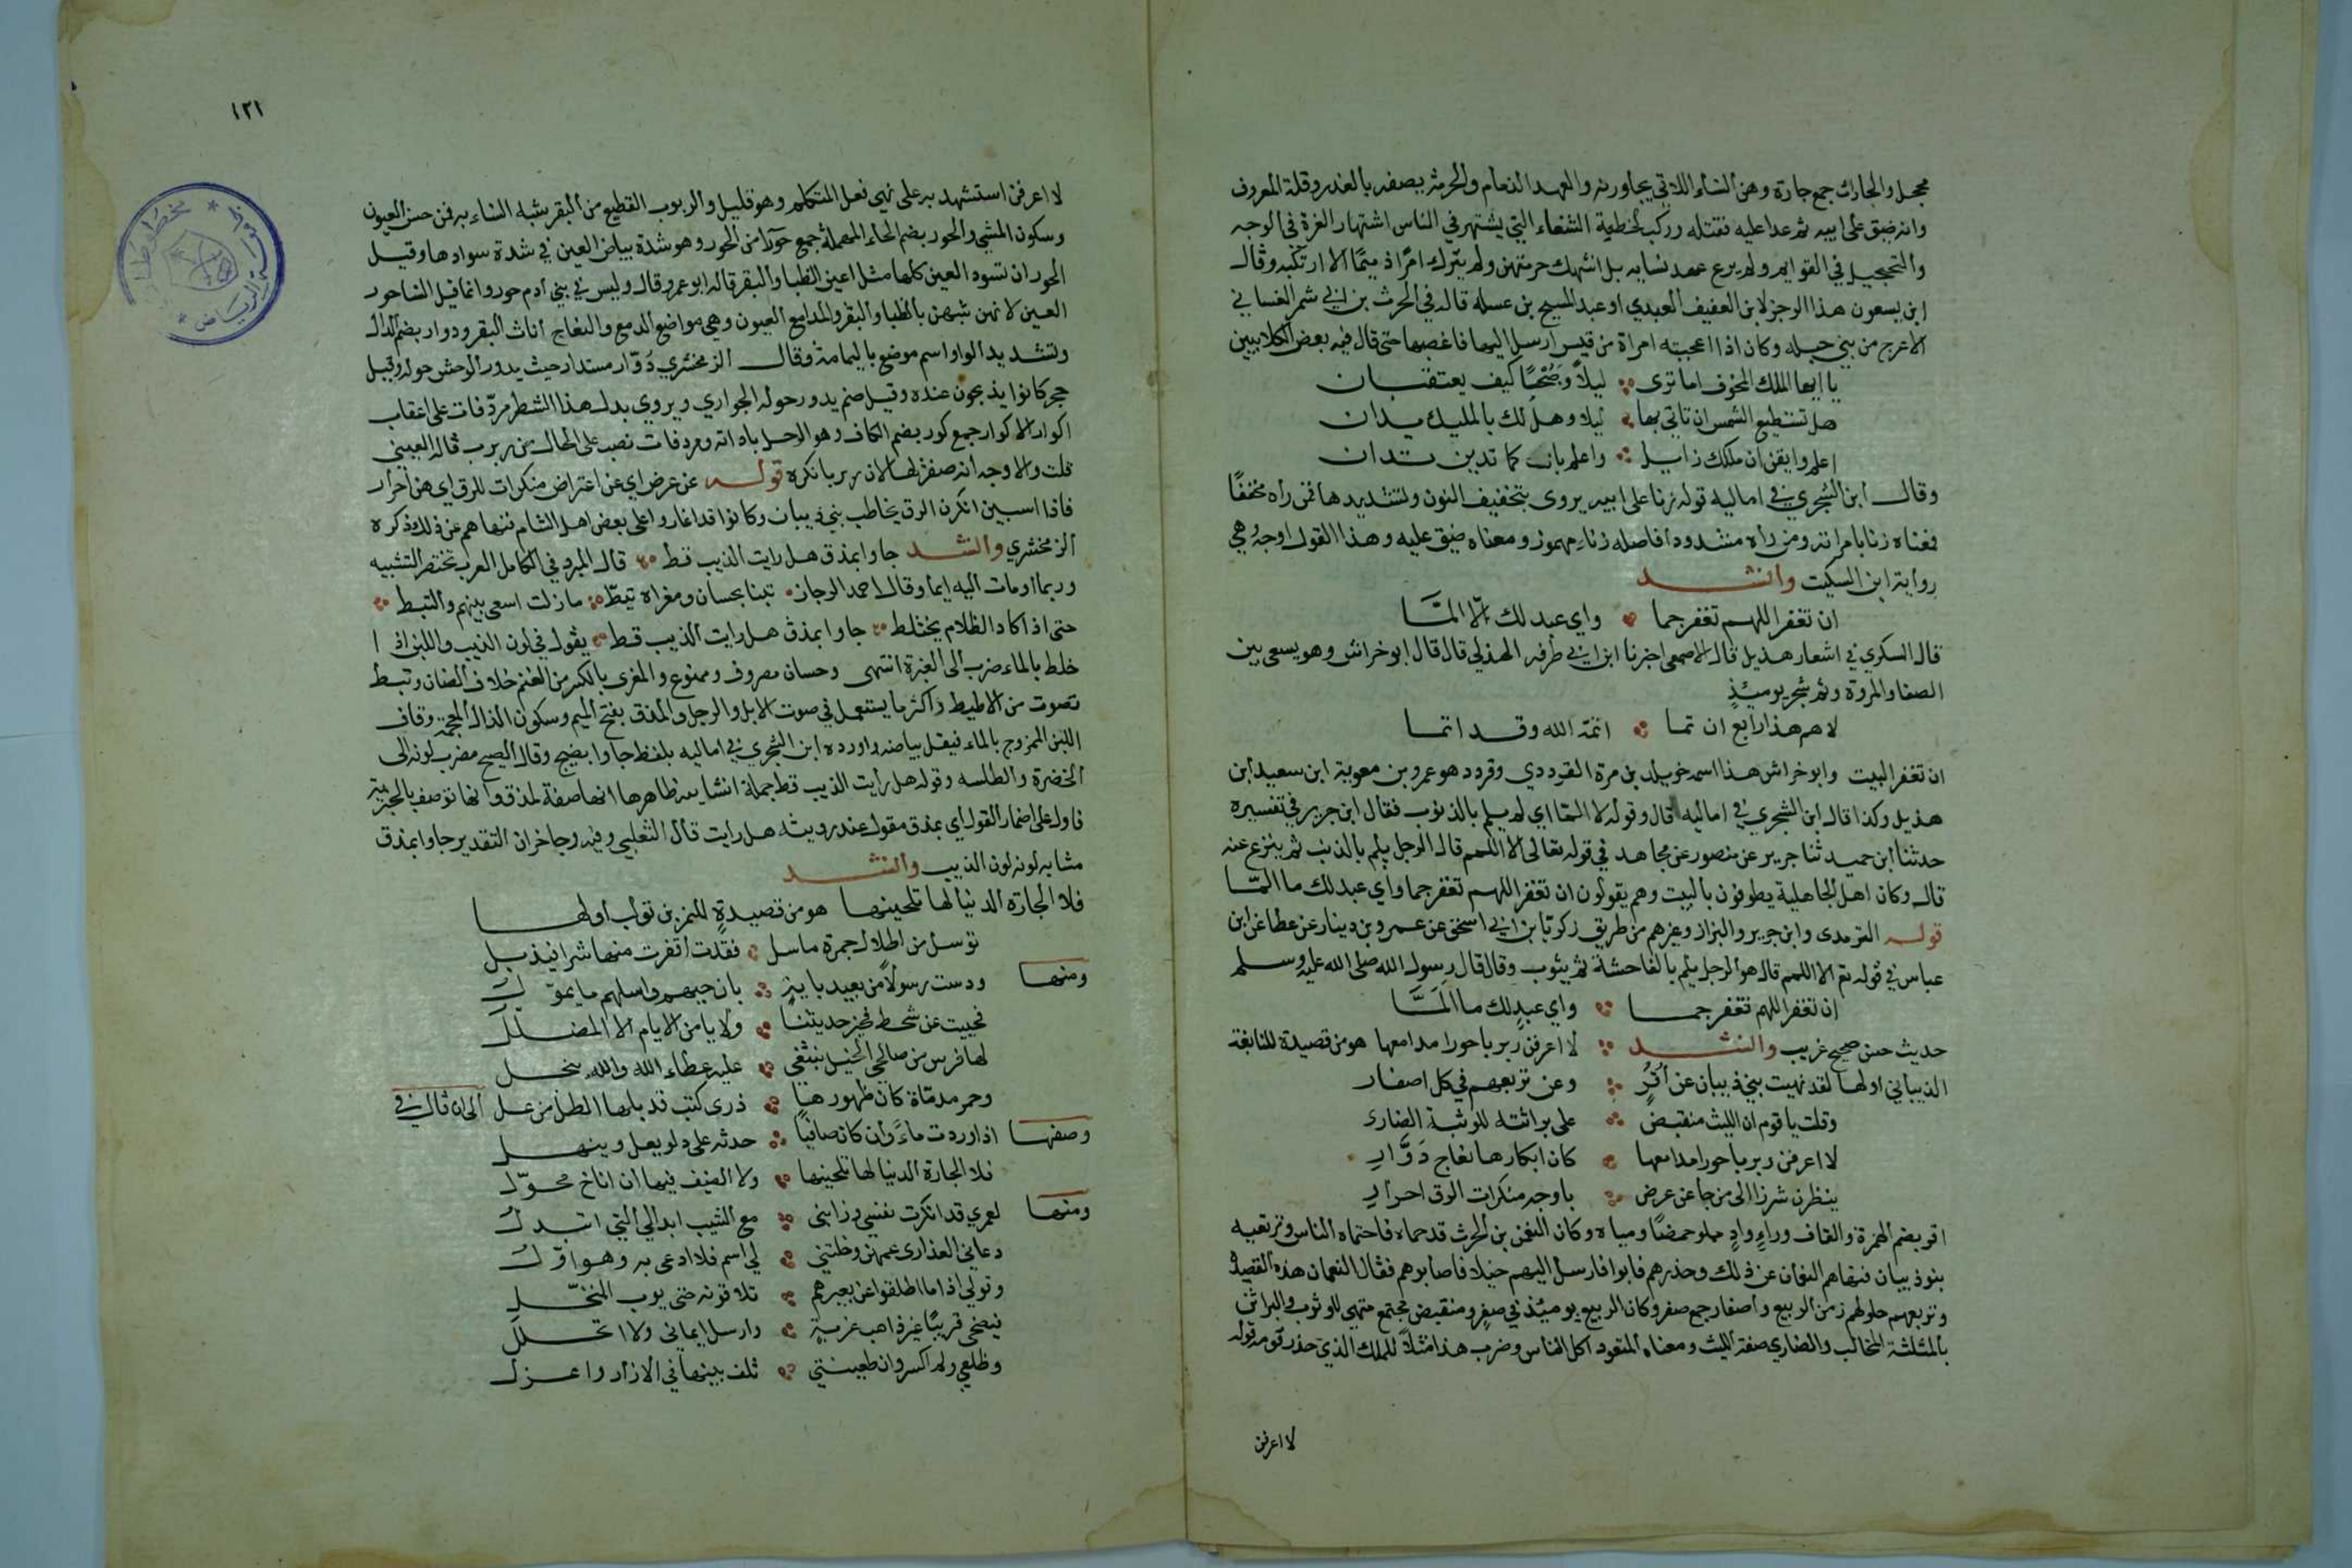 محجل والجارات جمع جارة وهن النساء اللاتي يجاورنه والعهد الذمام والحرمة يصفه بالغدر وقلة المعروف
وانه ضيق على ابيه ثم عدا عليه فقتله وركب الخطية الشنعاء التي يشتهر في الناس اشتهار الغرة في الوجه
والتحجيل في القوائم ولم يرع عهد نسايه بل انتهك حرمتهن ولم يترك امرًا ذميمًا الا ارتكبه وقال
ابن يسعون هذا الرجز لابن العفيف العبدي او عبد المسيح بن عسله قاله في الحرث بن ابي شمر الغساني
الاعرج من بني جبله وكان اذا اعجبته امراة من قيس ارسل اليها فاغصبها حتى قال فيه بعض الكلابيين
يا ايها الملك المخوف اما ترى ليلاً وصُبْحًا كيف يعتقبان
هل تستطيع الشمس ان تاتي بها ليلا وهل لك بالمليك يدان
اعلم وايقن ان ملكك زايل واعلم بان كما تدين تدان
وقال ابن الشجري في اماليه قوله زنا على ابيه يروى بتخفيف النون وتشديدها فمن رأه مخففًا
فمعناه زنا بامراته ومن رأه مشددا فاصله زناء مهموز ومعناه ضيق عليه وهذا القول اوجه وهي
رواية ابن السكيت وانشد
ان تغفر اللهم تغفر جما واي عبد لك لا المّا
قال السكري في اشعار هذيل قال الاصمعي اخبرنا ابن ابي طرفه الهذلي قال قال ابو خراش وهو يسعى بين
الصفا والمروة وثم شجر يوميئذٍ
لاهم هذا رابع ان تما اتمّه الله وقد اتما
ان تغفر البيت وابو خراش هذا اسمه خويلد بن مرة القرددي وقرد هو عمرو بن معوية ابن سعيد ابن
هذيل وكذا قال ابن الشجري في اماليه قال وقوله لا المّا اي لم يلم بالذنوب فقال ابن جرير في تفسيره
حدثنا ابن حميد ثنا جرير عن منصور عن مجاهد في قوله تعالى الا اللمم قال الرجل يلم بالذنب ثم ينزع عنه
قال وكان اهل الجاهلية يطوفون بالبيت وهم يقولون ان تغفر اللهم تغفر جما واي عبد لك ما المّا
قوله الترمدي وابن جرير والبزاز وغيرهم من طريق زكريّا بن ابي اسحق عن عمرو بن دينار عن عطا عن ابن
عباس في قوله تع الا اللمم قال هو الرجل يلم بالفاحشة ثم يتوب وقال قال رسول الله صلى الله عليه وسلم
ان تغفر اللهم تغفر جما واي عبدٍ لك ما المَّا
حديث حسن صحيح غريب وانشد لا اعرفن ربربا حورا مدامعها هو من قصيدة للنابغة
الذبياني اولها لقد نهيت بني ذبيان عن أُقُرٍ وعن تربعهم في كل اصفار
وقلت يا قوم ان الليث منقبض على براثنه للوثبة الضارى
لا اعرفن ربربا حورا مدامعها كان ابكارها نعاج دَوَّارِ
ينظرن شزرا الى من جا عن عرض باوجه منكرات الرق احرار
اقر بضم الهمزة والقاف وراء وادٍ مملو حمضًا ومياه وكان النعمن بن الحرث قد حماه فاحتماه الناس وتربعه
بنو ذبيان فنهاهم النعمان عن ذلك وحذرهم فابوا فارسل اليهم خيلا فاصابوهم فقال النعمان هذه القصيدة
وتربعهم حلولهم زمن الربيع واصفار جمع صفر وكان الربيع يوميئذ في صفر ومنقبض مجتمع متهي للوثوب والبراثن
بالمثلثة المخالب والضاري صفة الليث ومعناه المتعود اكل الناس وضرب هذا مثلاً للملك الذي حذر قومه قوله
لا اعرفن
١٢١
لا اعرفن استشهد به على نهي فعل المتكلم وهو قليل والربوب القطيع من البقر يشبه النساء به فن حسن العيون
وسكون المشي والحور بضم الحاء المهملة جمع حورا من الحور وهو شدة بياض العين في شدة سوادها وقيل
الحور ان تسود العين كلها مثل اعين الظبا والبقر قاله ابو عمرو قال وليس في بني ادم حور وانما قيل النسا حور
العين لانهن شبهن بالظبا والبقر والمدامع العيون وهي مواضع الدمع والنعاج اناث البقر ودوار بضم الدال
وتشديد الواو اسم موضع باليمامة وقال الزمخشري دُوّار مستدار حيث يدور الوحش حوله وقيل
حجر كانوا يذبحون عنده وقيل صنم يدور حوله الجواري ويروى بدل هذا الشطر مردّفات على اعقاب
اكوار الاكوار جمع كور بضم الكاف وهو الرحل باداته ومردفات نصب على الحال من ربرب قاله العيني
قلت والاوجه انه صفة لها لان ربربا نكره قوله عن عرض اي عن اعتراض منكرات للرق اي هن احرار
فاذا اسبين انكرن الرق يخاطب بني ذبيان وكانوا قد اغاروا على بعض اهل الشام فنهاهم عن ذلك ذكره
الزمخشري وانشد جاوا بمذق هل رايت الذيب قط قال المبرد في الكامل العرب تختصر التشبيه
وربما اومات اليه ايما وقال احمد الرجاز بتنا بحسان ومغراه تيطّ مازلت اسعى بينهم والتبط
حتى اذا كاد الظلام يختلط جاوا بمذق هل رايت الذيب قط يقول في لون الذيب واللبن اذا
خلط بالماء ضرب الى الغبرة انتهى وحسان مصروف وممنوع والمغرى بالكسر من الغنم خلاف الضان وتبط
تصوت من الاطيط واكثر ما يستعمل في صوت الابل والرحل والمذق بفتح الميم وسكون الذال المعجمة وقاف
اللبن الممزوج بالماء فيقل بياضه واورده ابن الشجري في اماليه بلفظ جاوا بضيح وقال الضيح مضرب لونه الى
الخضرة والطلسه وقوله هل رأيت الذيب قط جملة انشاييه ظاهرها انها صفة لمذق وانها توصف بالخبرية
فاول على اضمار القول اي بمذق مقول عند رويته هل رايت قال الثعلبي وفيه وجا خران التقدير جاوا بمذق
مشابه لونه لون الذيب وانشد
فلا الجارة الدنيا لها تلحينها هو من قصيدةٍ للنمر بن تولب اولها
توسل من اطلال جمرة ماسل فقدت اقفرت منها شرا فيذبل
ومنها ودست رسولاً من بعيد بايةٍ بان حيهم واسلهم ما يموّل
فحييت عن شحط فخير حديثنا ولا يامن الايام الا المضلل
لها فرس من صالحي الخيل ينتقي عليه عطاء الله والله ينحل
وحمر مدمّاة كان ظهورها ذرى كثب قد بلها الطل من عل الى ان قال في
وصفها اذا وردت ماءً وان كان صافيًا حدثه على دلو يعل وينهل
فلا الجارة الدنيا لها تلحينها ولا الضيف فيها ان اناخ محوّل
ومنها لعمري قد انكرت نفسي ورابني مع الشيب ابدالي التي اتبدل
دعاني العذارى عمهن وخلتني لي اسم فلا ادعى به وهو اوّل
وتولي اذا ما اطلقوا عن بعيرهم تلاقونه حتى يوب المنخّل
فيضحى قريبًا غير ذاهب غربةٍ وارسل ايماني ولا اتحلل
وظلعي ولم اكسر وان ظعينتي تلف بنيها في الازار واعزل